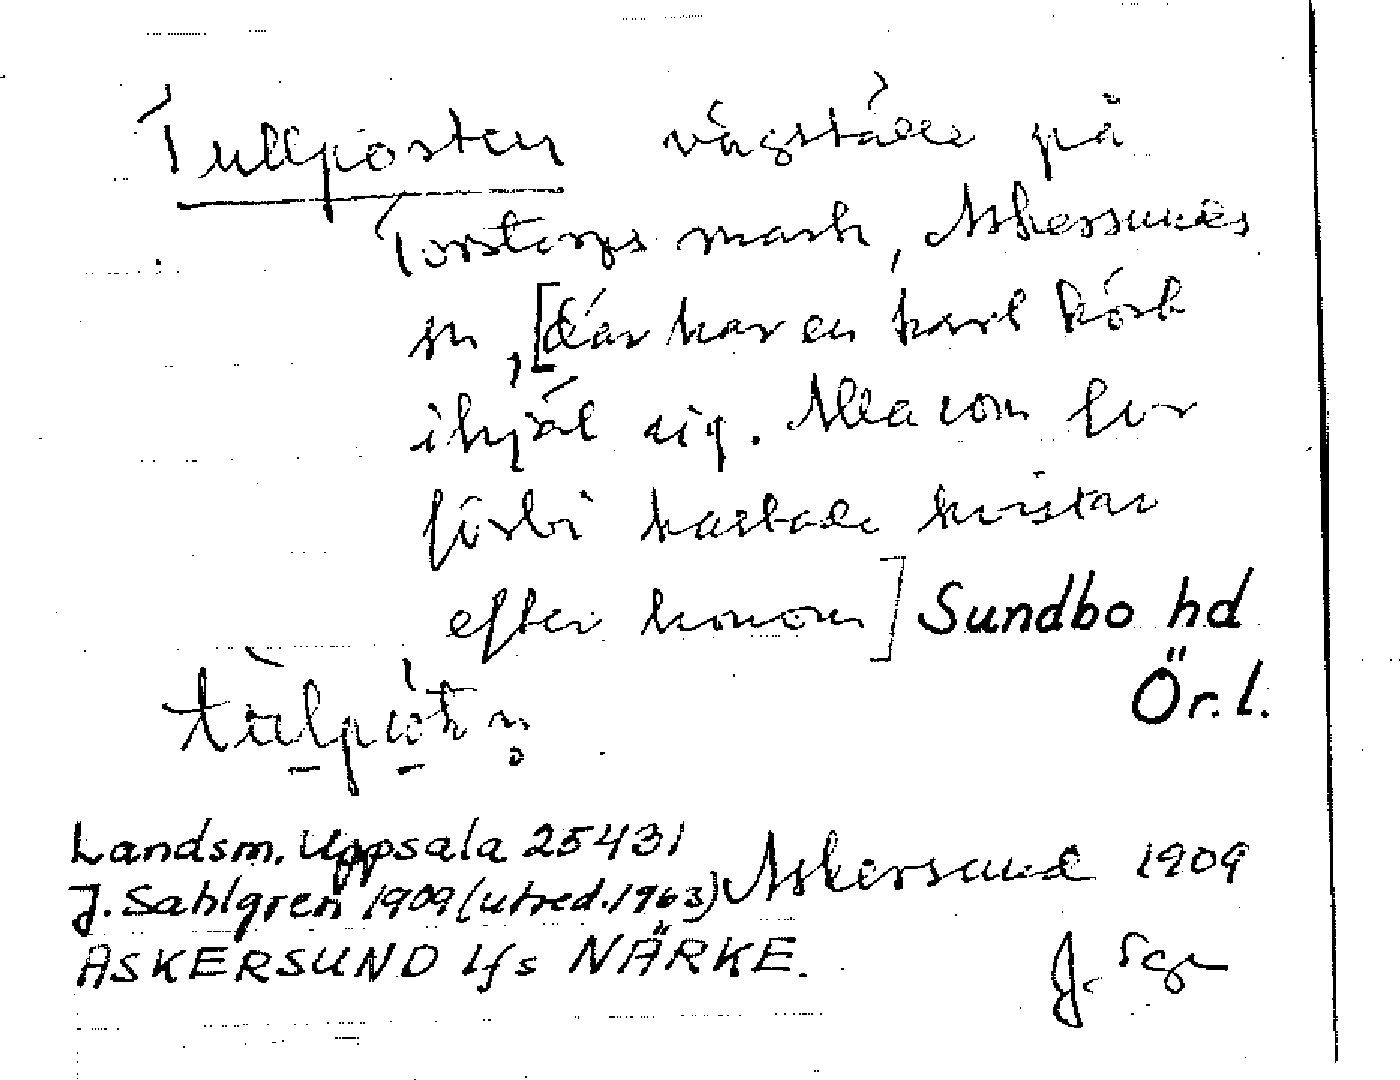 Tullposten vägställe på
Torstorps mark, Askersunds
sn, [där har en karl kört
ihjäl sig. Alla som for
förbi kastade kvistar
efter honom] Sundbo hd
Ör. l.
Landsm. Uppsala 25431
J. Sahlgren 1909 (utred. 1963) Askersund 1909
ASKERSUND lfs NÄRKE. J. Sgn